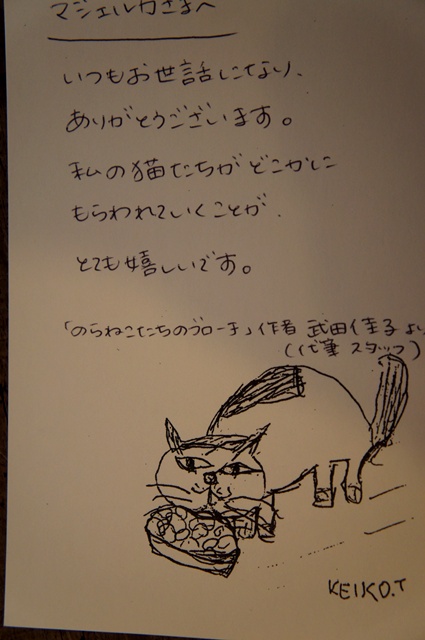 マジェルカさまへ
いつもお世話になり、
ありがとうございます。
私の猫たちがどこかに
もらわれていくことが、
とても嬉しいです。
「のらねこたちのブローチ」作者 武田佳子より
(代筆 スタッフ)
KEIKO.T